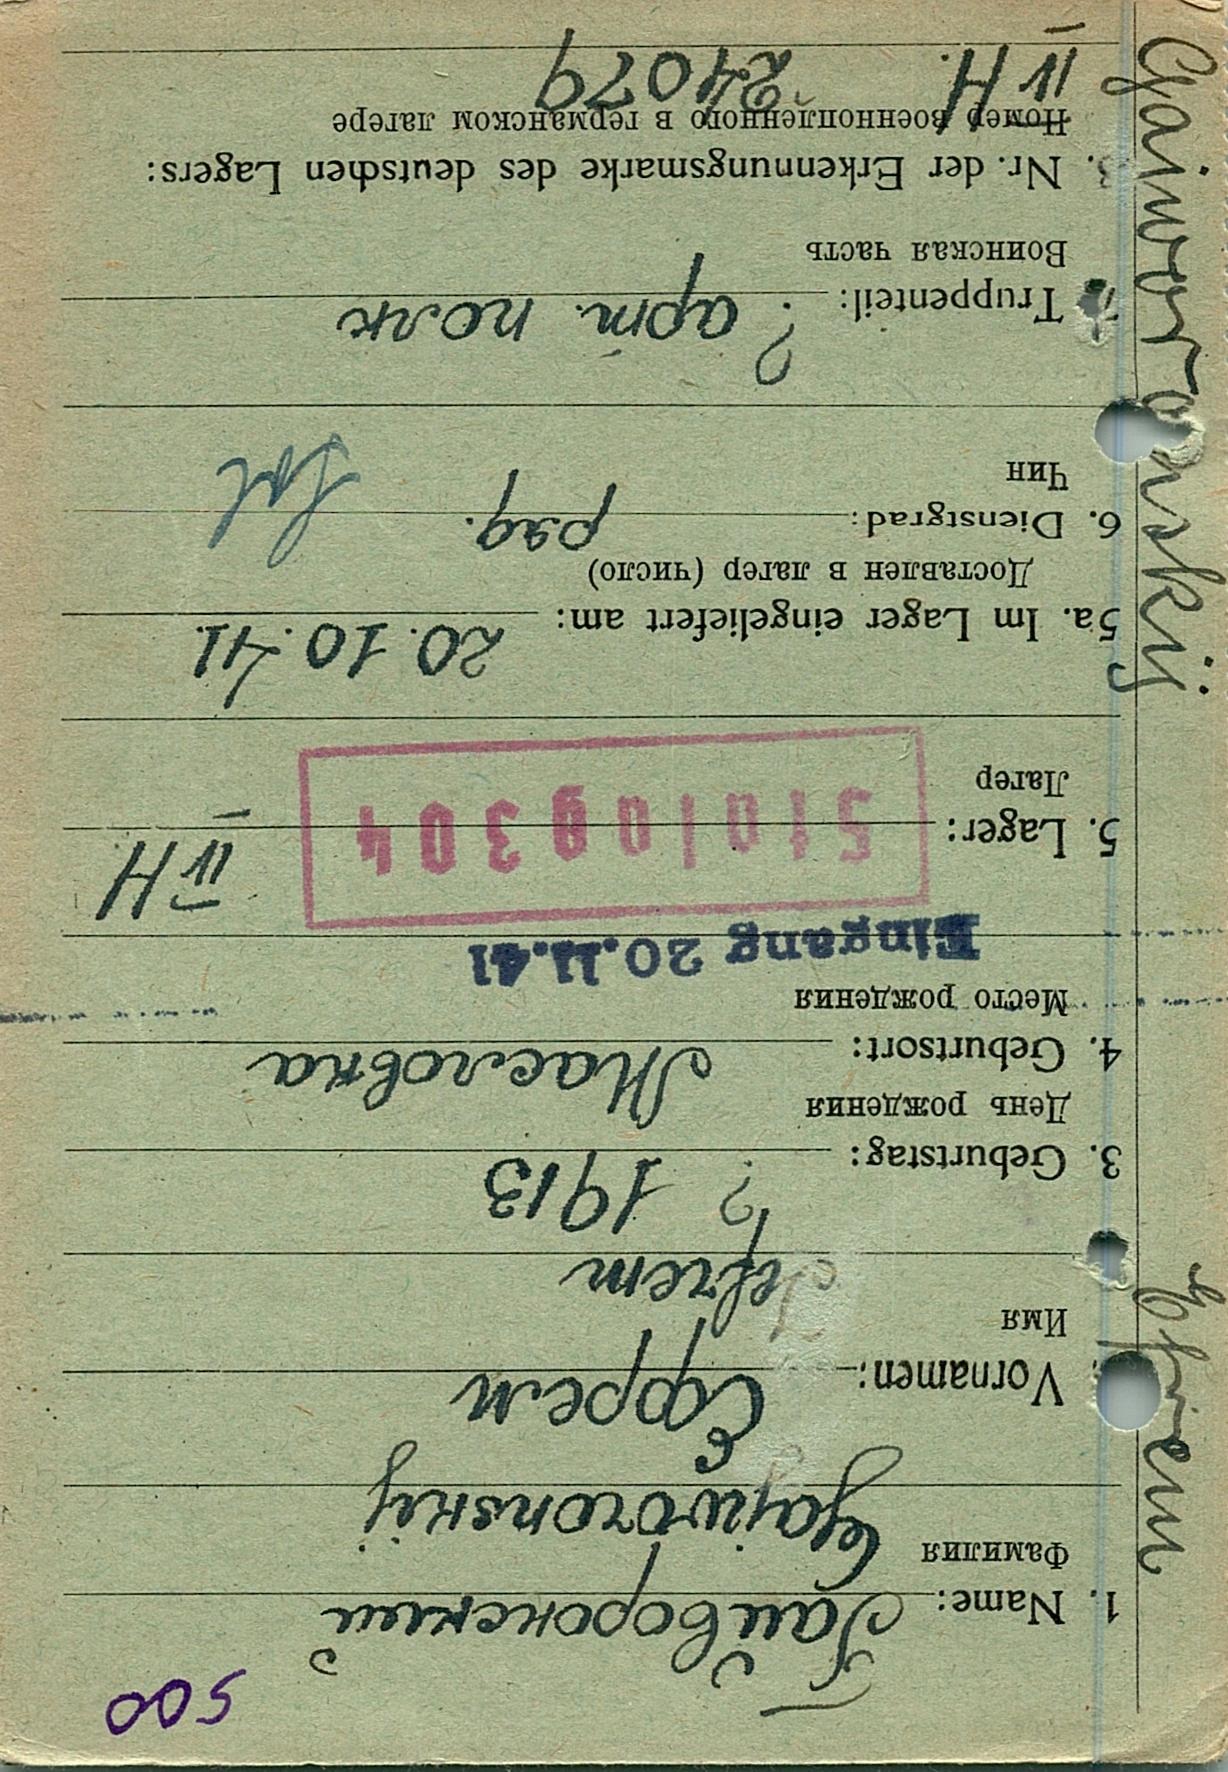 500
1. Name: Гайворонский
Фамилия Gajworonskij
Vornamen: Ефрем
Имя Jefrem
3. Geburtstag: ? 1913
День рождения
4. Geburtsort: Масловка
Место рождения
Eingang 20.11.41
5. Lager: Stalag 304 IV H
Лагер
5a. Im Lager eingeliefert am: 20.10.41.
Доставлен в лагер (число)
6. Dienstgrad: ряд. Sol
Чин
7. Truppenteil: ? арт. полк
Воинская часть
8. Nr. der Erkennungsmarke des deutschen Lagers:
Номер военнопленного в германском лагере
IV H. 24079
Gaiworonskij Efrem